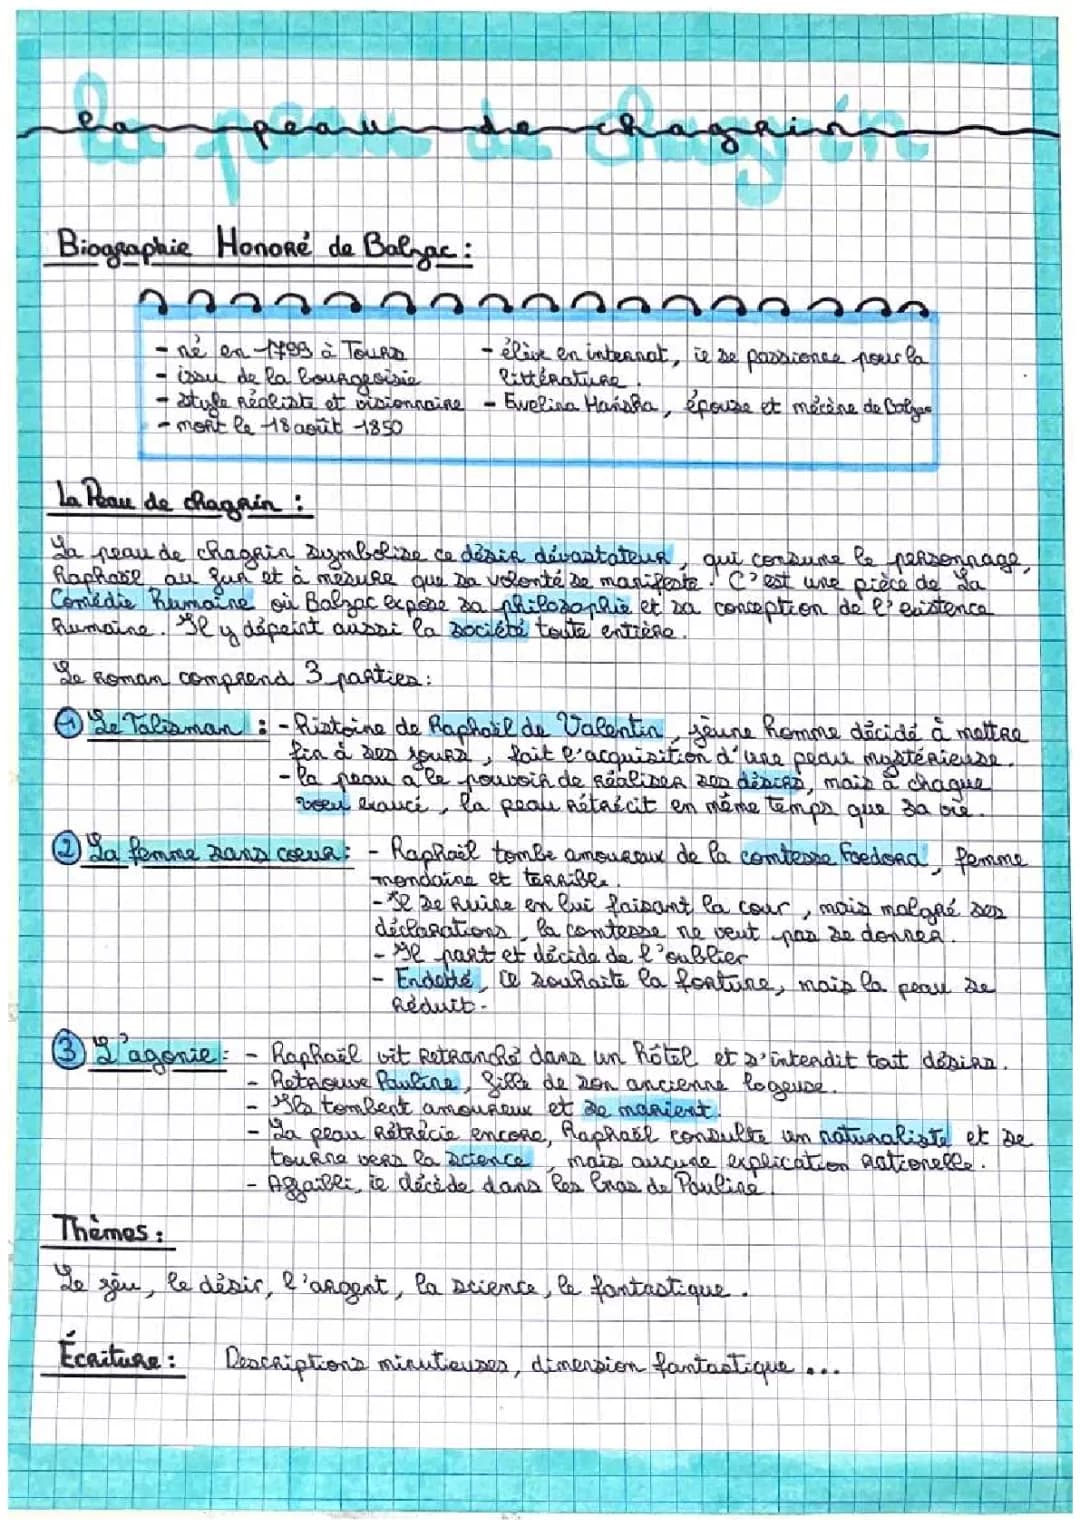 la peau de chagrin
Biographie Honoré de Balzac :
- né en 1799 à Tours
- issu de la bourgeoisie
- style réaliste et visionnaire
- mort le 18 août 1850
- élève en internat, il se passionne pour la
littérature.
- Evelina Hańska, épouse et mécène de Balzac
La Peau de chagrin :
La peau de chagrin symbolise ce désir dévastateur, qui consume le personnage,
Raphaël au fur et à mesure que sa volonté se manifeste. C'est une pièce de La
Comédie humaine où Balzac expose sa philosophie et sa conception de l'existence
humaine. Il y dépeint aussi la société toute entière.
Le roman comprend 3 parties :
① Le Talisman : - histoire de Raphaël de Valentin, jeune homme décidé à mettre
fin à ses jours, fait l'acquisition d'une peau mystérieuse.
- la peau a le pouvoir de réaliser ses désirs, mais à chaque
voeu exaucé, la peau rétrécit en même temps que sa vie.
② La femme sans coeur : - Raphaël tombe amoureux de la comtesse Foedora, femme
mondaine et terrible.
- Il se ruine en lui faisant la cour, mais malgré ses
déclarations, la comtesse ne veut pas se donner.
- Il part et décide de l'oublier
- Endetté, il souhaite la fortune, mais la peau se
réduit.
③ L'agonie : - Raphaël vit retranché dans un hôtel et s'interdit tout désirs.
- Retrouve Pauline, fille de son ancienne logeuse.
- Ils tombent amoureux et se marient.
- La peau rétrécie encore, Raphaël consulte un naturaliste et se
tourne vers la science, mais aucune explication rationelle.
- Affaibli, il décède dans les bras de Pauline.
Thèmes :
Le jeu, le désir, l'argent, la science, le fantastique.
Écriture : Descriptions minutieuses, dimension fantastique ...